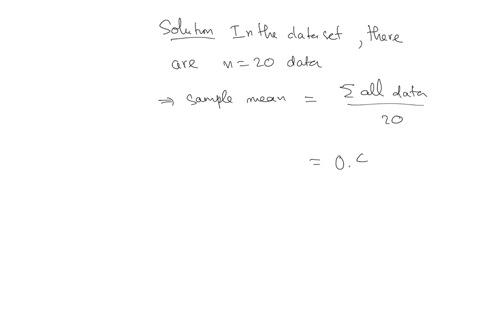 Solution In the dataset, there
are n=20 data
⇒ sample mean = Σ all data / 20
= 0.